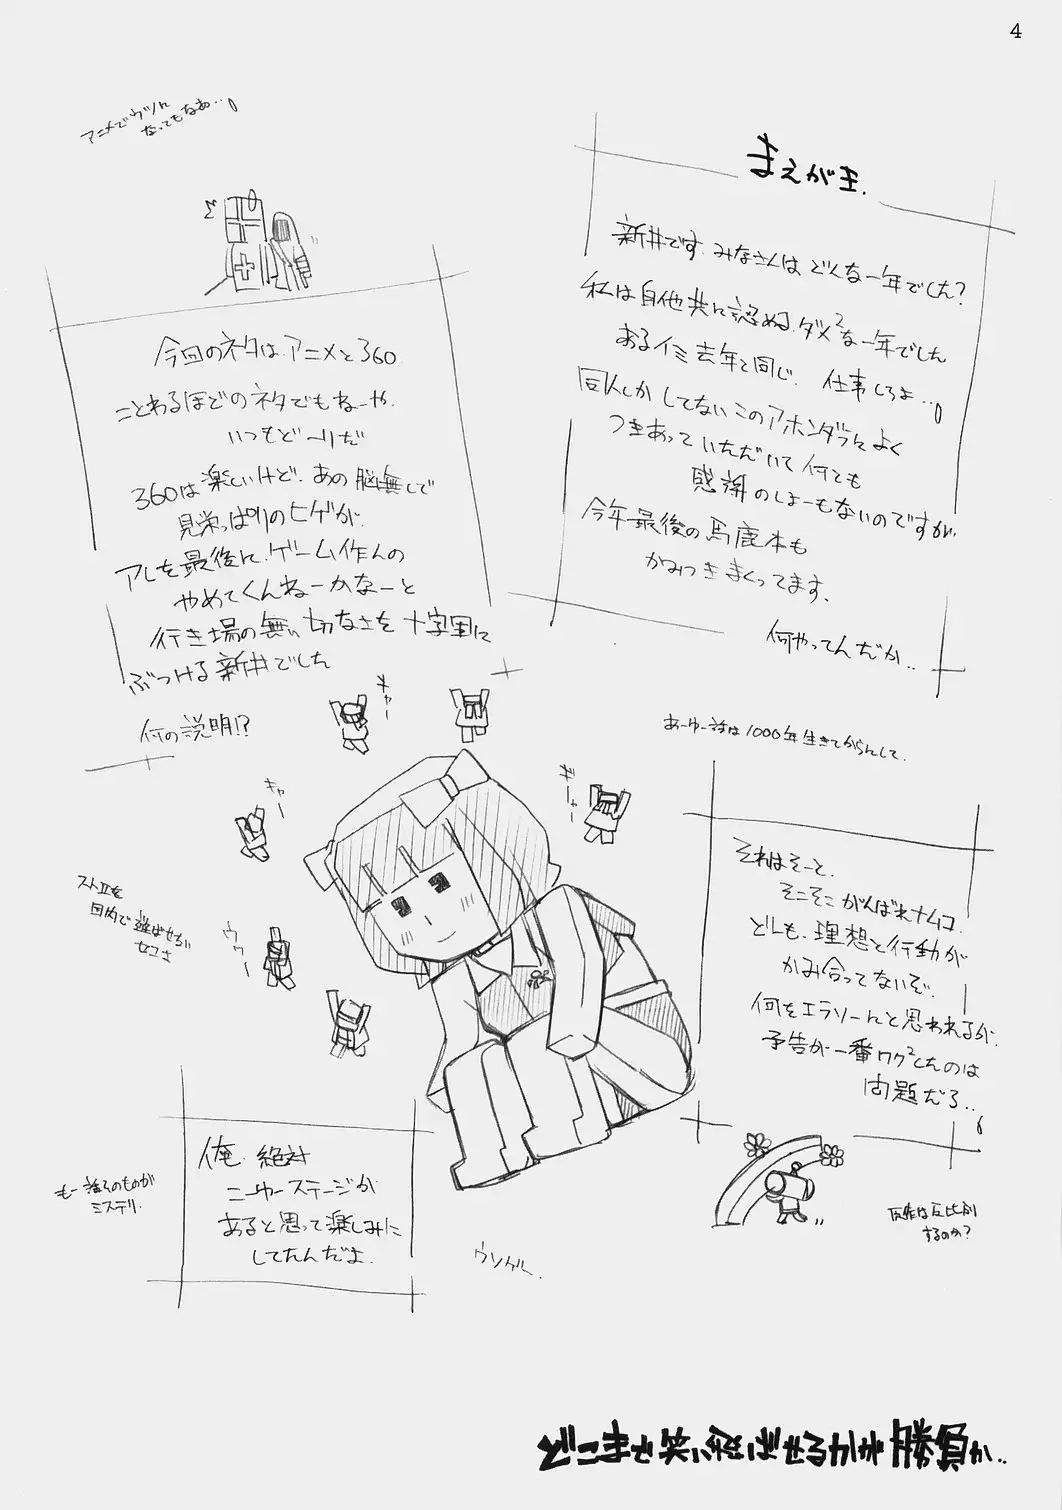 4
まえがき.
新井です.みなさんは どんな一年でした?
私は自他共に認めるダメ²な一年でした
あるイミ去年と同じ. 仕事しろよ…。
同人しか してない このアホンダラによく
つきあって いただいて 何とも
感謝のしよーもないのですが
今年最後の馬鹿本も
かみつきまくってます.
何やってんだか..
アニメでウツに
なってもなあ…。
今回のネタは.アニメと360.
ことわるほどのネタでもねーや.
いつもど〜りだ
360は楽しいけど.あの脳無しで
見栄っぱりのヒゲが.
アレを最後に.ゲーム作んの
やめてくんねーかなーと
行き場の無い切なさを十字軍に
ぶつける新井でした
何の説明!?
キャー
ギャー
キャー
ウワー
あーゆー話は1000年生きてからんして.
それはそーと.
そこそこがんばれナムコ.
どーも.理想と行動が
かみ合ってないぞ.
何をエラソーにと思われるが.
予告が一番ワク²したのは
問題だろ..。
ストⅡを
国内で遊ばせない
セコさ
俺.絶対
ニューヨーステージが
あると思って楽しみに
してたんだよ.
もー誰そのものが
ミステリ.
ウソゲー.
反比例
するのか?
どこまで笑い飛ばせるかが勝負か..